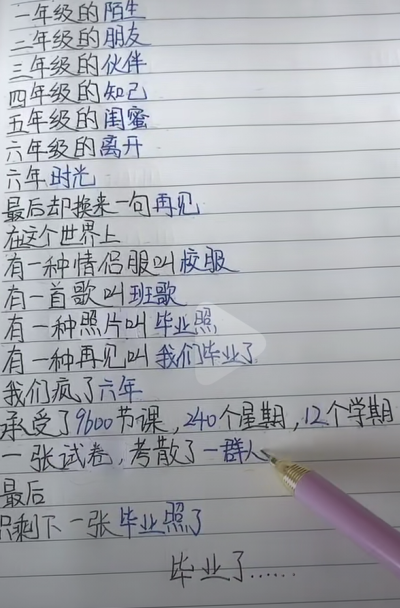 一年级的陌生
二年级的朋友
三年级的伙伴
四年级的知己
五年级的闺蜜
六年级的离开
六年时光
最后却换来一句再见
在这个世界上
有一种情侣服叫校服
有一首歌叫班歌
有一种照片叫毕业照
有一种再见叫我们毕业了
我们疯了六年
承受了9600节课,240个星期,12个学期
一张试卷,考散了一群人
最后
只剩下一张毕业照了
毕业了……